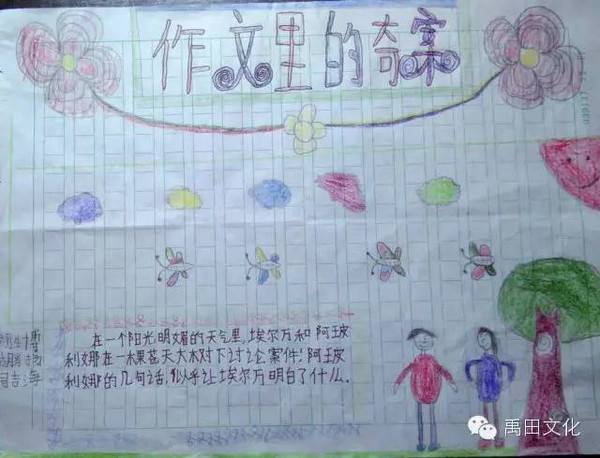 作文里的奇案
在一个阳光明媚的天气里,埃尔万和阿玻
利娜在一棵苍天大树下讨论案件!阿玻
利娜的几句话,似乎让埃尔万明白了什么.
禹田文化